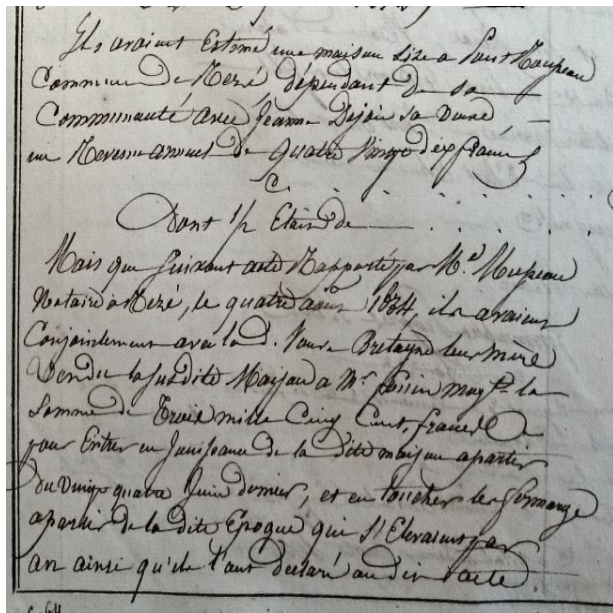 Ils avaient Estimé une maison Size a Pont Rouseau
Commune de Rezé dépendant de sa
Communauté avec Jeanne Dejoie sa veuve
un Revenu annuel de quatre vingt dix francs
C.
Dont 1/2 Etait de
Mais que Suivant acte Rapporté par Me
Notaire a Rezé, le quatre aout 1834, ils avaient
Conjointement avec la d. Veuve Bretagne leur mere
Vendu la Susdite Maison a Mr. la
Somme de Trois mille Cinq Cent, francs
pour Entrer en Jouissance de la dite maison a partir
du vingt quatre Juin dernier, et en toucher les fermages
a partir de la dite Epoque qui S'Elevaient par
an ainsi qu'ils l'ont declaré au dit acte